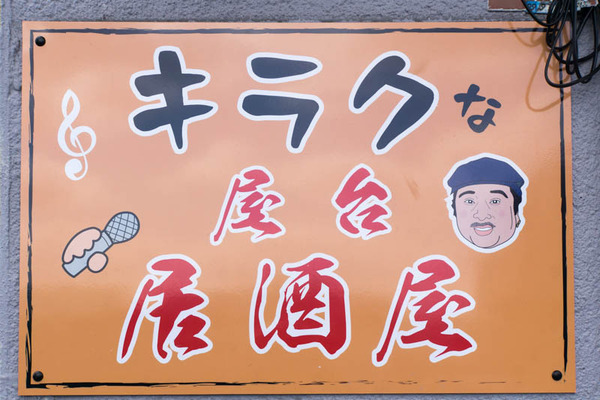 キラクな
屋台
居酒屋